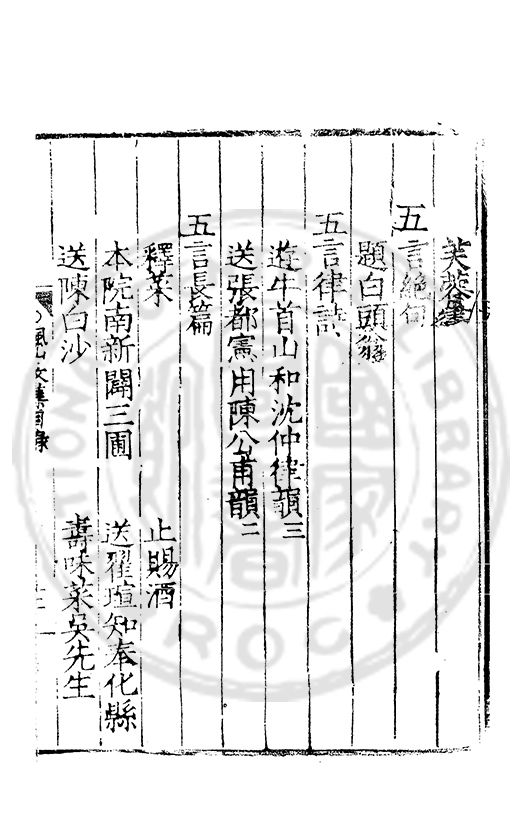 芙蓉畫
五言絕句
題白頭翁
五言律詩
遊牛首山和沈仲律韻三
送張都憲用陳公甫韻二
五言長篇
釋菜　止賜酒
本院南新闢三圃　送翟瑄知奉化縣
送陳白沙　壽味菜吳先生
楓山文集目錄
LIBRARY